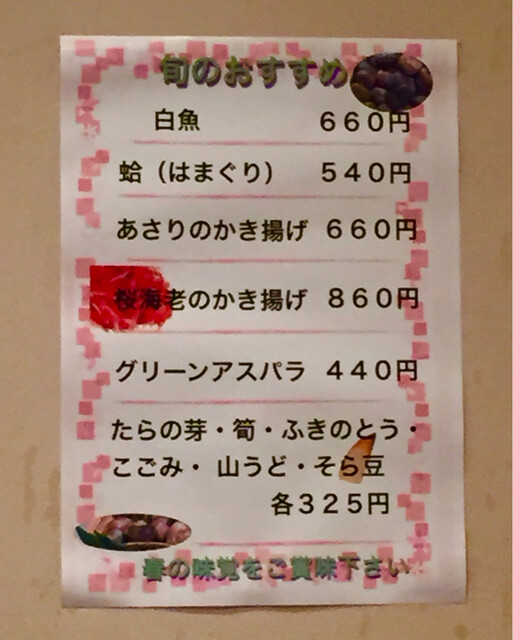 旬のおすすめ
白魚 660円
蛤（はまぐり） 540円
あさりのかき揚げ 660円
桜海老のかき揚げ 860円
グリーンアスパラ 440円
たらの芽・筍・ふきのとう・
こごみ・山うど・そら豆
各325円
春の味覚をご賞味下さい